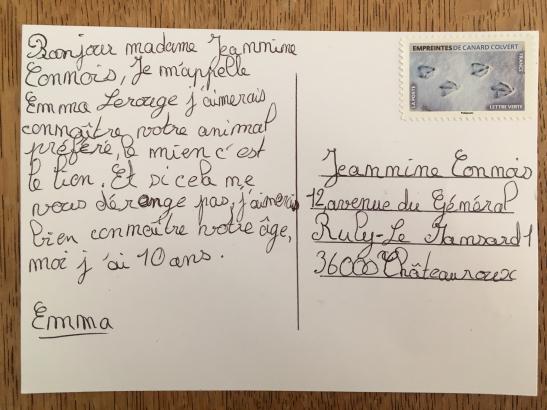 Bonjour madame Jeannine
Connois, Je m'appelle
Emma Lerouge j'aimerais
connaître votre animal
préféré, le mien c'est
le lion. Et si cela ne
vous dérange pas, j'aimerais
bien connaître votre âge,
moi j'ai 10 ans.
Emma
EMPREINTES DE CANARD COLVERT
LA POSTE
FRANCE
LETTRE VERTE
Jeannine Connois
12, avenue du Général
Ruly-Le Mansard 1
36000 Châteauroux